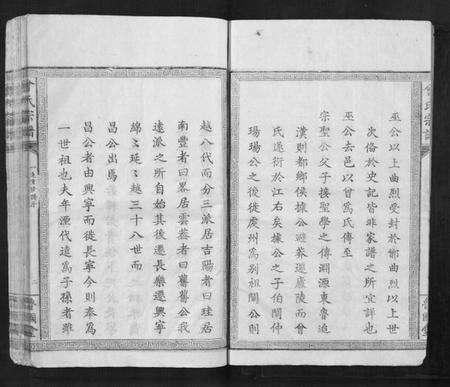 巫公以上曲烈受封於鄫曲烈以上世
次倫於史記皆非家譜之所宜詳也
巫公去邑以曾爲氏傳至
宗聖公父子接聖學之傳淵源東魯追
漢則都鄉侯據公避莽遷廬陵而曾
氏遂衍於江右矣據公之子伯閩仲
瑒瑒公之後徙虔州爲別祖閩公則
越八代而分三派居吉陽者曰珪居
南豐者曰畧居雲蓋者曰舊舊公我
遠派之所自始其後遷長樂遷興寧
綿〻延〻越三十八世而
昌公出焉
昌公者由興寧而徙長寧今則奉爲
一世祖也夫年湮代遠爲子孫者非
氏宗譜